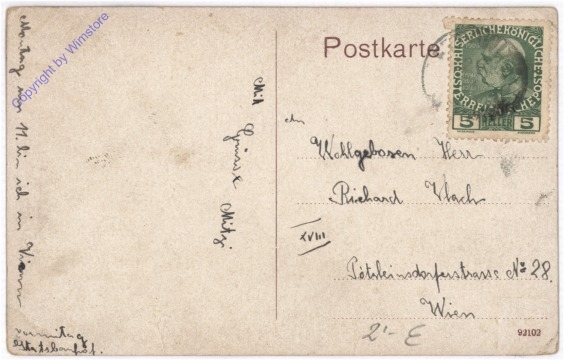 Postkarte
K.K. ÖSTERREICHISCHE POST
5 HELLER 5
An
Wohlgeboren Herr
Richard Vlach
XVIII
Pötzleinsdorferstrasse No 28.
Wien
Mit
Grüsse
Mitzi
Montag um 11. bin ich in Vienna
vormittag
Staatsbanhof.
2'- E
92102
Copyright by Wimstore